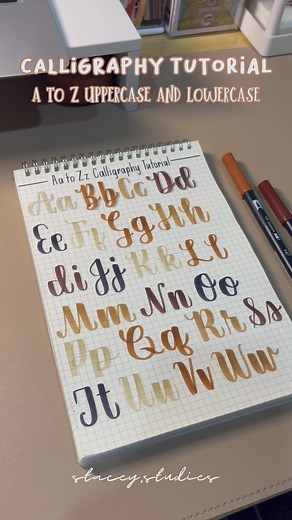 CALLIGRAPHY TUTORIAL
A TO Z UPPERCASE AND LOWERCASE
Aa to Zz Calligraphy Tutorial
Aa Bb Cc Dd
Ee Ff Gg Hh
Ii Jj Kk Ll
Mm Nn Oo
Pp Qq Rr Ss
Tt Uu Vv Ww
stacey.studies